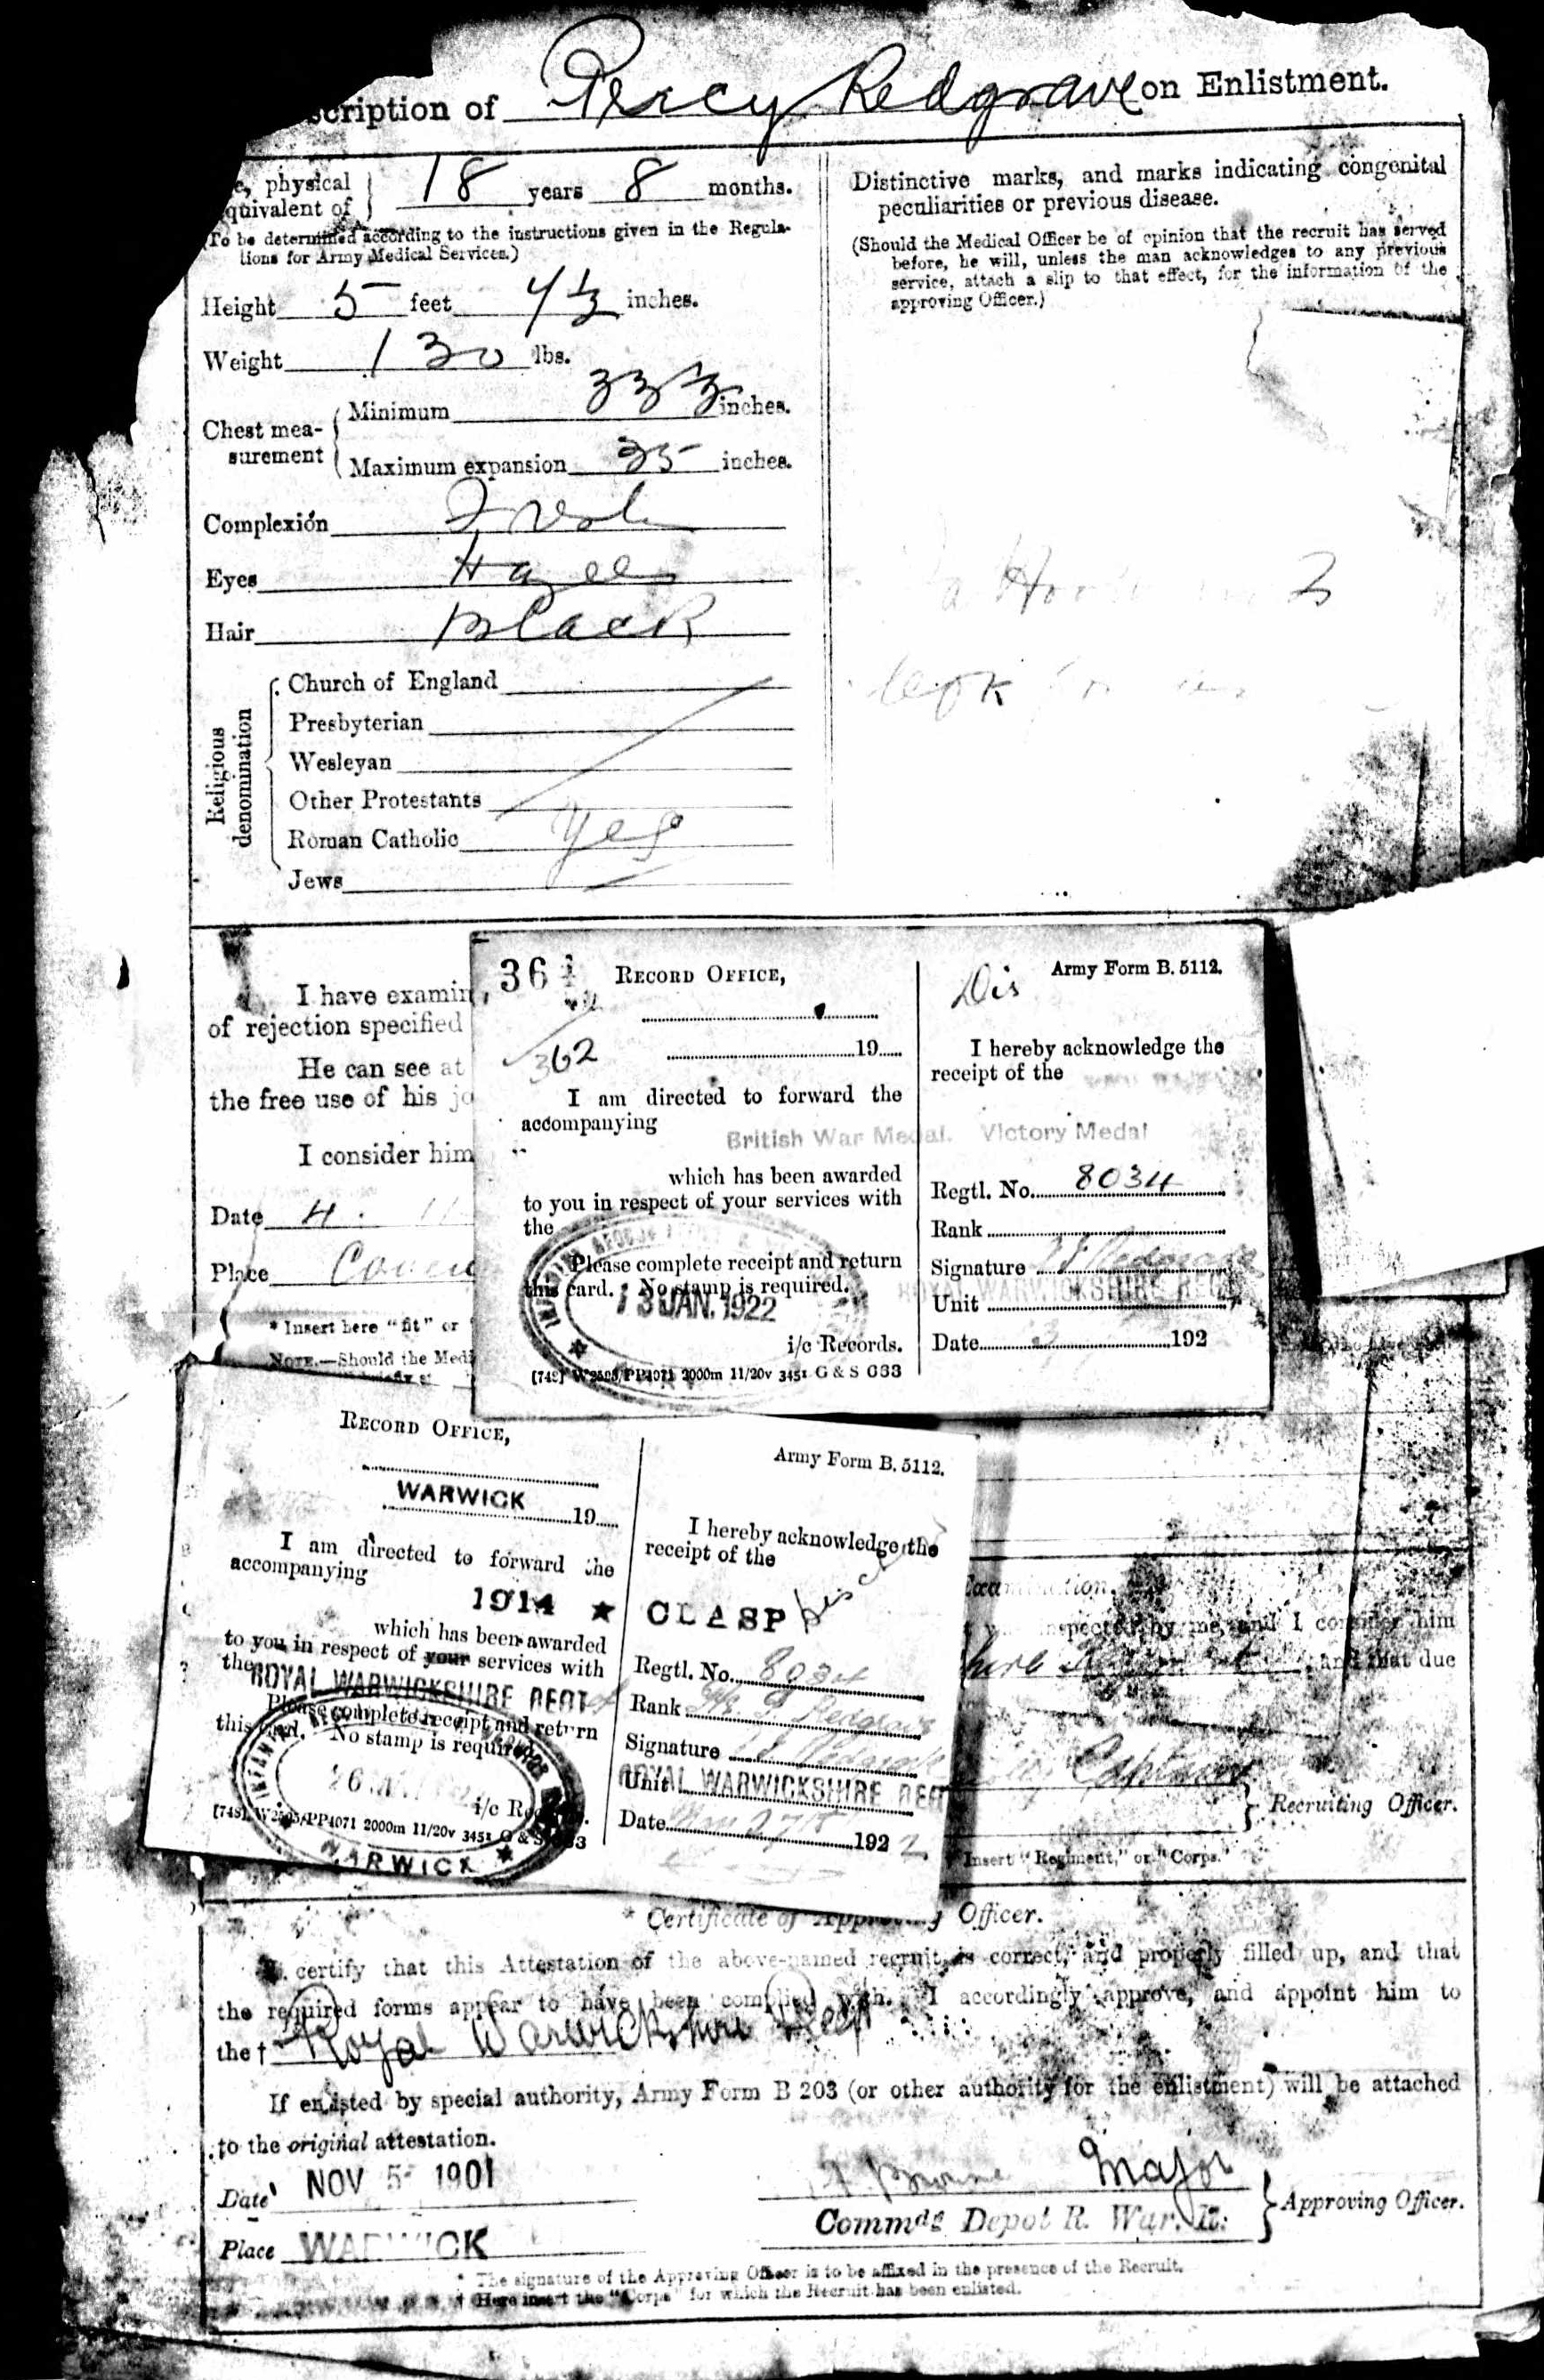 scription of Percy Redgrave on Enlistment.
physical
equivalent of } 18 years 8 months.
(To be determined according to the instructions given in the Regula-
tions for Army Medical Services.)
Height 5 feet inches.
Weight 130 lbs.
Chest mea-
surement
Minimum inches.
Maximum expansion 35 inches.
Complexion Fresh
Eyes Hazel
Hair Black
Religious
denomination
Church of England
Presbyterian
Wesleyan
Other Protestants
Roman Catholic Yes
Jews
Distinctive marks, and marks indicating congenital
peculiarities or previous disease.
(Should the Medical Officer be of opinion that the recruit has served
before, he will, unless the man acknowledges to any previous
service, attach a slip to that effect, for the information of the
approving Officer.)
I have examin
of rejection specified
He can see at
the free use of his jo
I consider him
Date 4. 11
Place Coven
* Insert here "fit" or
NOTE.—Should the Medi
36
RECORD OFFICE,
362
19
I am directed to forward the
accompanying
British War Medal. Victory Medal
which has been awarded
to you in respect of your services with
the
Please complete receipt and return
this card. No stamp is required.
13 JAN. 1922
i/c Records.
2000m 11/20v 3451 G & S 633
Dis
Army Form B. 5112.
I hereby acknowledge the
receipt of the
Regtl. No. 8034
Rank
Signature Redgrave
ROYAL WARWICKSHIRE REGT
Unit
Date 192
RECORD OFFICE,
WARWICK 19
I am directed to forward the
accompanying
1914 ★
which has been awarded
to you in respect of your services with
the ROYAL WARWICKSHIRE REGT
Please complete receipt and return
this card. No stamp is required.
i/c
[748] W2595/PP4071 2000m 11/20v 3451 G & S 633
WARWICK
Army Form B. 5112.
I hereby acknowledge the
receipt of the
CLASP
Regtl. No. 8034
Rank Redgrave
Signature Redgrave
Unit ROYAL WARWICKSHIRE REGT
Date 1922
Examination.
inspected by me, and I consider him
and that due
Captain
} Recruiting Officer.
Insert "Regiment," or "Corps."
* Certificate of Approving Officer.
I certify that this Attestation of the above-named recruit is correct, and properly filled up, and that
the required forms appear to have been complied with. I accordingly approve, and appoint him to
the † Royal Warwickshire Regt
If enlisted by special authority, Army Form B 203 (or other authority for the enlistment) will be attached
to the original attestation.
Date NOV 5 1901
Major
Commdg Depot R. War. R. } Approving Officer.
Place WARWICK
* The signature of the Approving Officer is to be affixed in the presence of the Recruit.
† Here insert the "Corps" for which the Recruit has been enlisted.